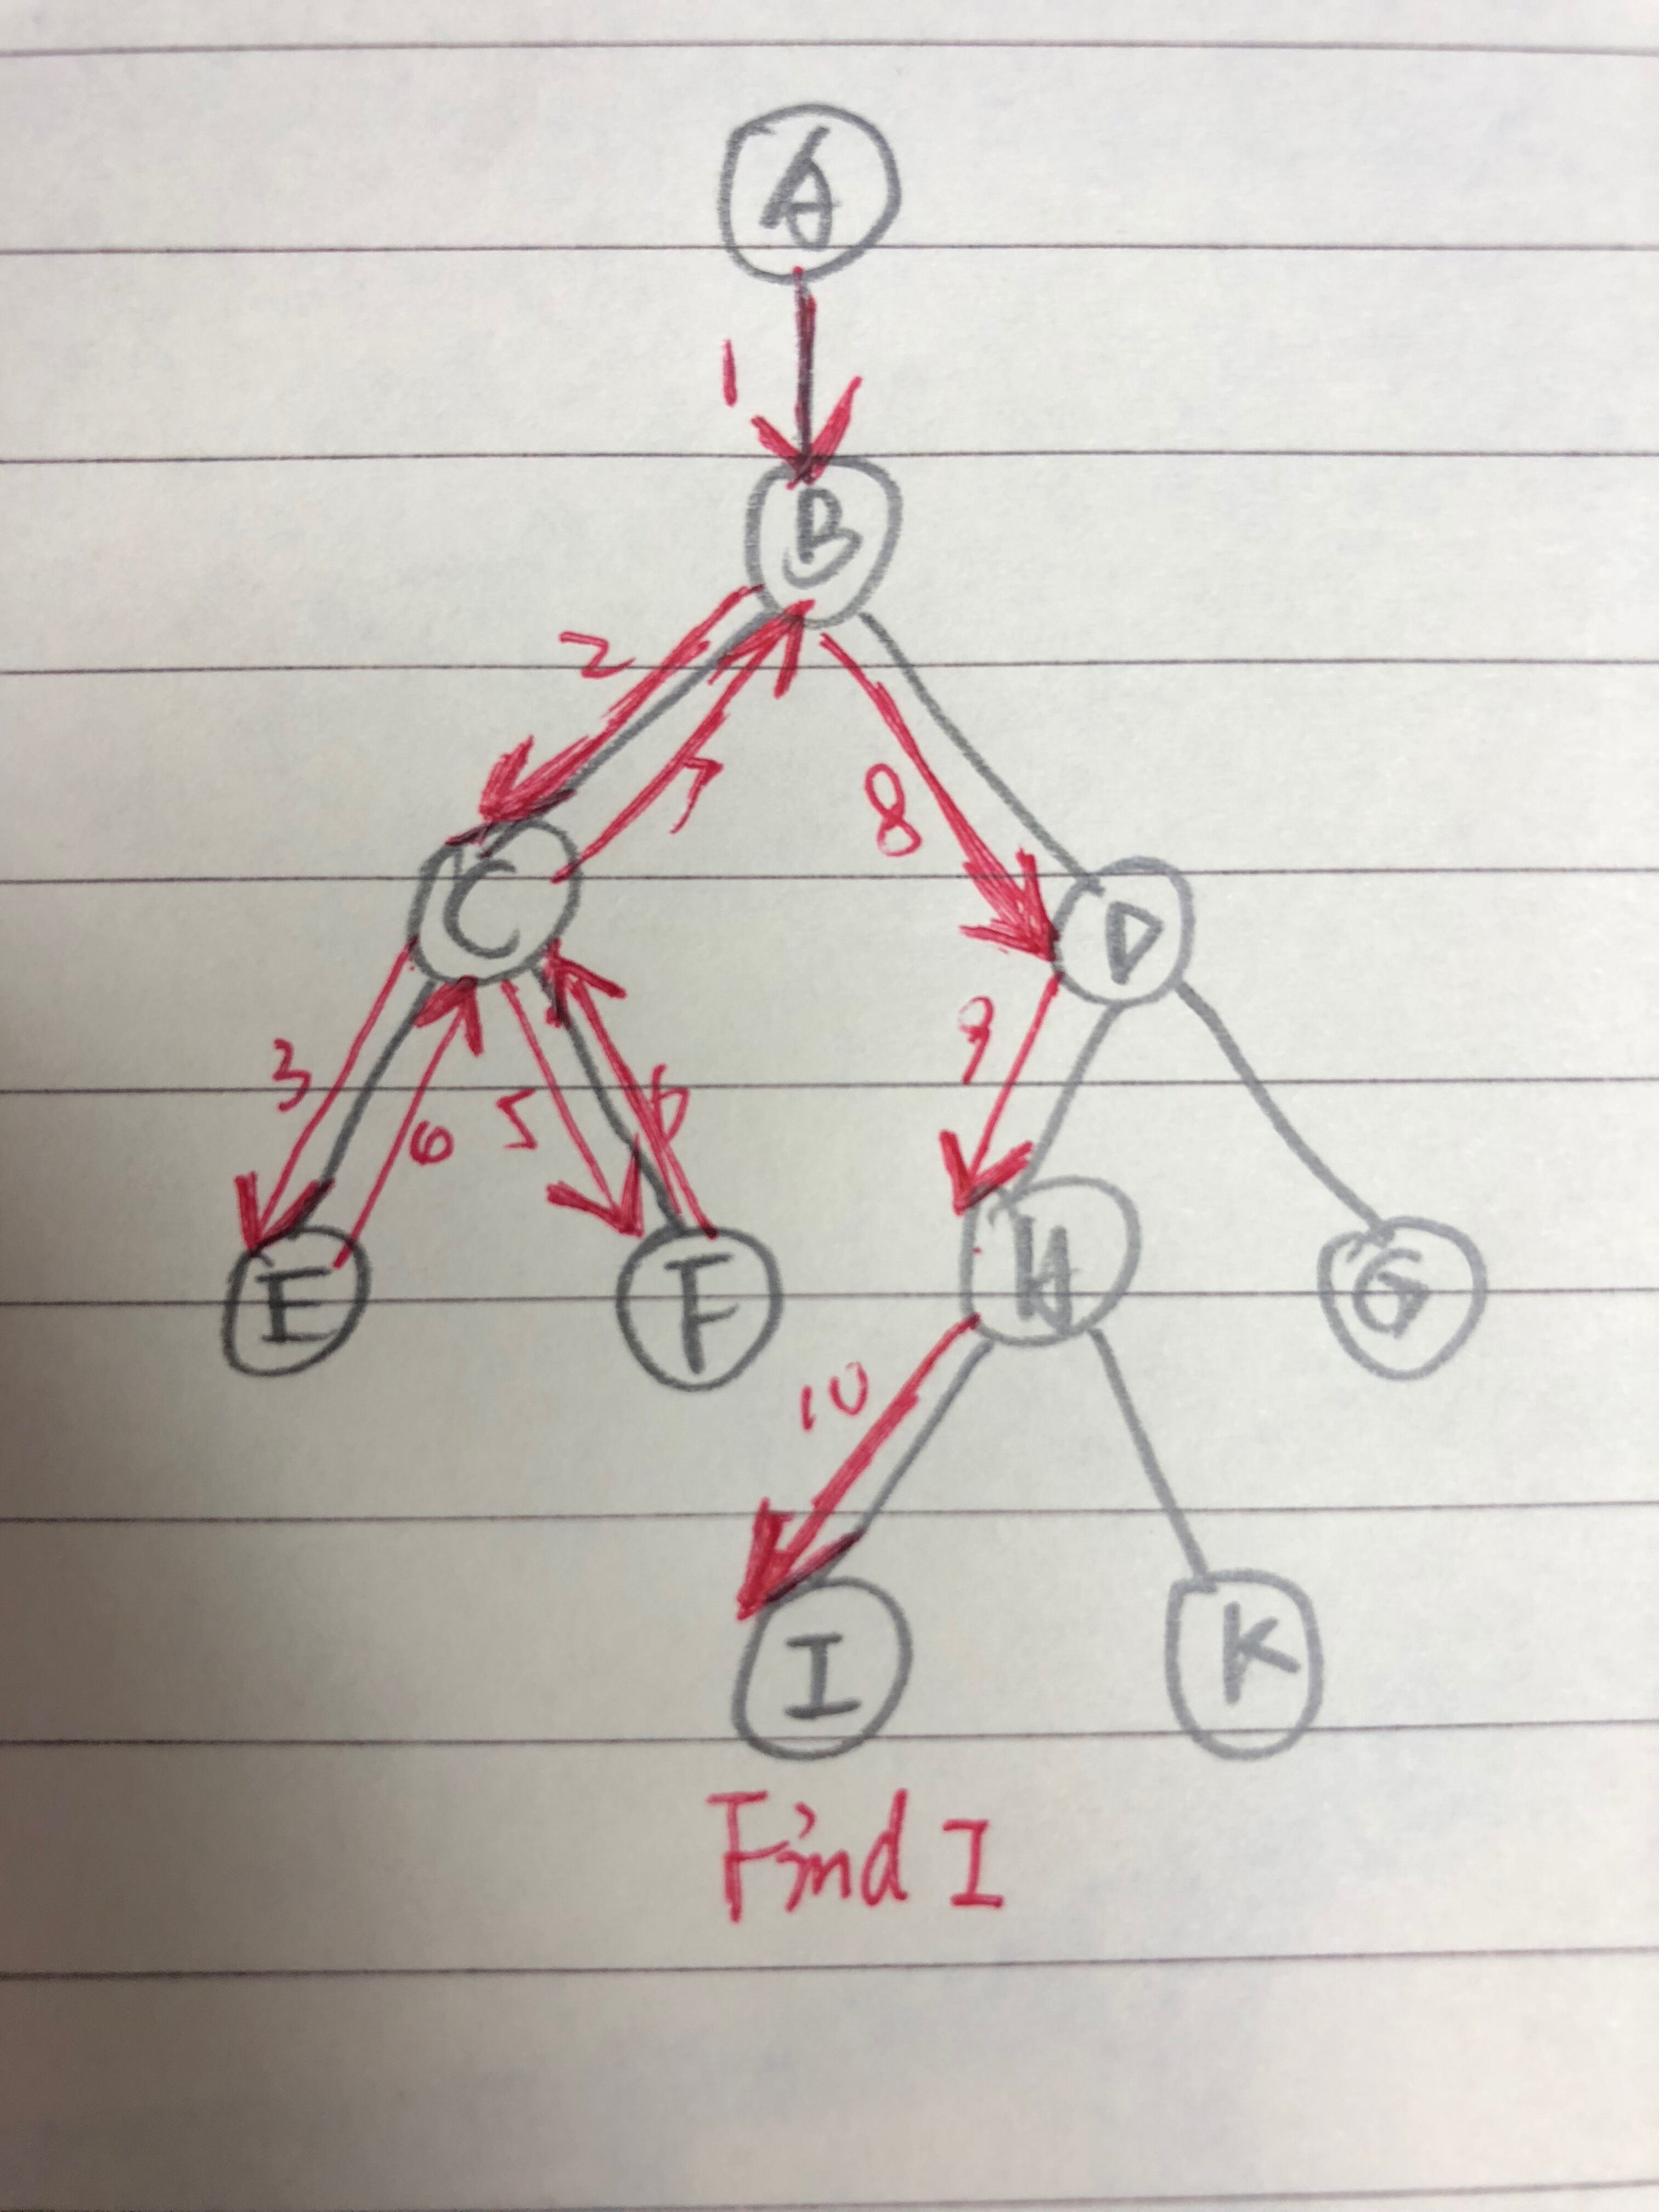 A
1
B
2
7
8
C
D
3
6
5
6
9
E
F
H
G
10
I
K
Find I